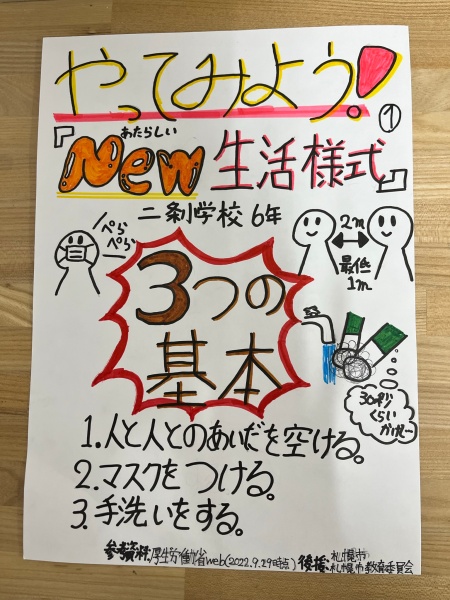 やってみよう!
①
あたらしい
『New 生活様式』
二条学校 6年
ぺら
ぺら
2m
最低
1m
3つの
基本
30秒
くらい
1.人と人とのあいだを空ける。
2.マスクをつける。
3.手洗いをする。
参考資料:厚生労働省web(2022.9.29時点)
後援:札幌市
札幌市教育委員会